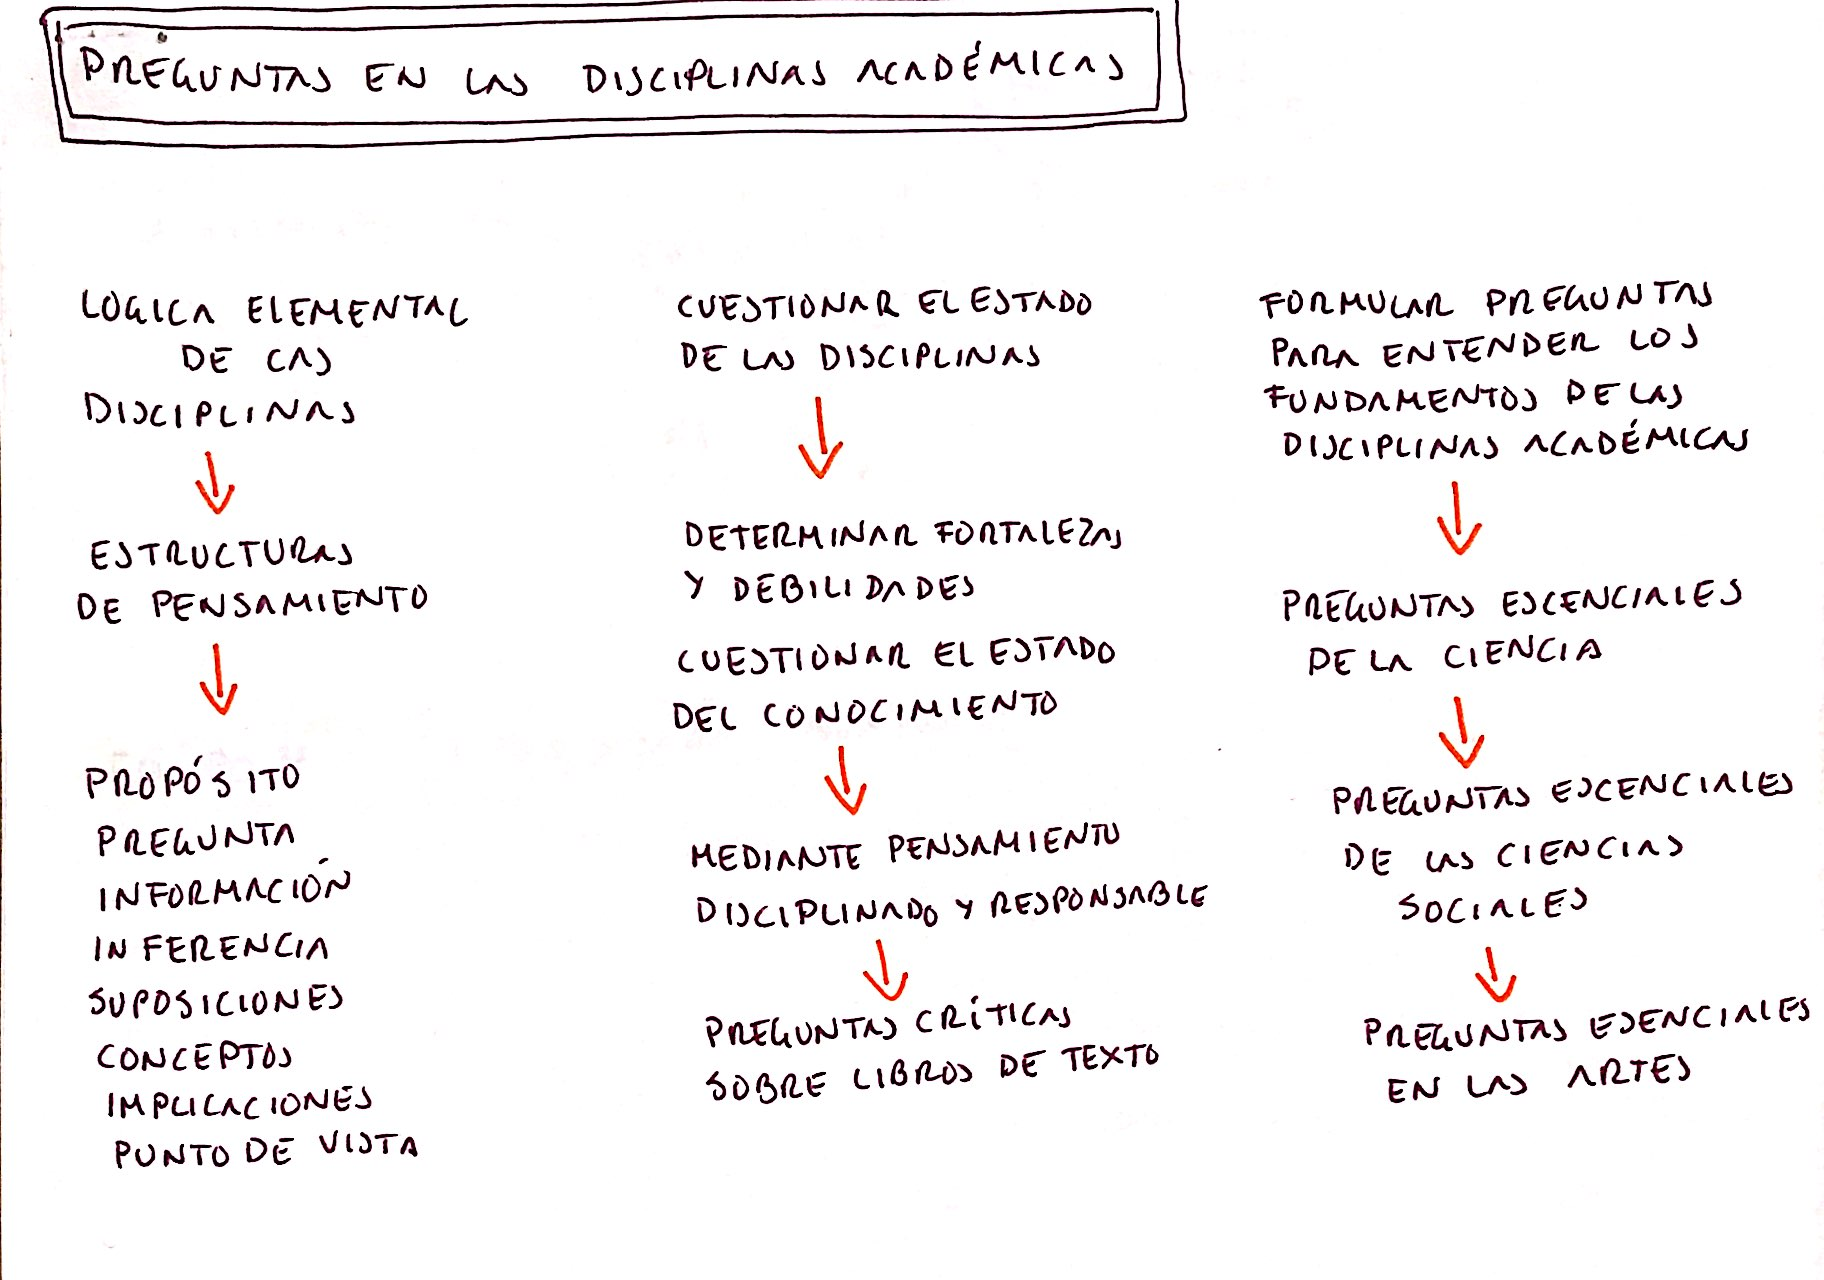 PREGUNTAS EN LAS DISCIPLINAS ACADÉMICAS
LOGICA ELEMENTAL
DE LAS
DISCIPLINAS
ESTRUCTURAS
DE PENSAMIENTO
PROPÓSITO
PREGUNTA
INFORMACIÓN
INFERENCIA
SUPOSICIONES
CONCEPTOS
IMPLICACIONES
PUNTO DE VISTA
CUESTIONAR EL ESTADO
DE LAS DISCIPLINAS
DETERMINAR FORTALEZAS
Y DEBILIDADES
CUESTIONAR EL ESTADO
DEL CONOCIMIENTO
MEDIANTE PENSAMIENTO
DISCIPLINADO Y RESPONSABLE
PREGUNTAS CRÍTICAS
SOBRE LIBROS DE TEXTO
FORMULAR PREGUNTAS
PARA ENTENDER LOS
FUNDAMENTOS DE LAS
DISCIPLINAS ACADÉMICAS
PREGUNTAS ESCENCIALES
DE LA CIENCIA
PREGUNTAS ESCENCIALES
DE LAS CIENCIAS
SOCIALES
PREGUNTAS ESENCIALES
EN LAS ARTES